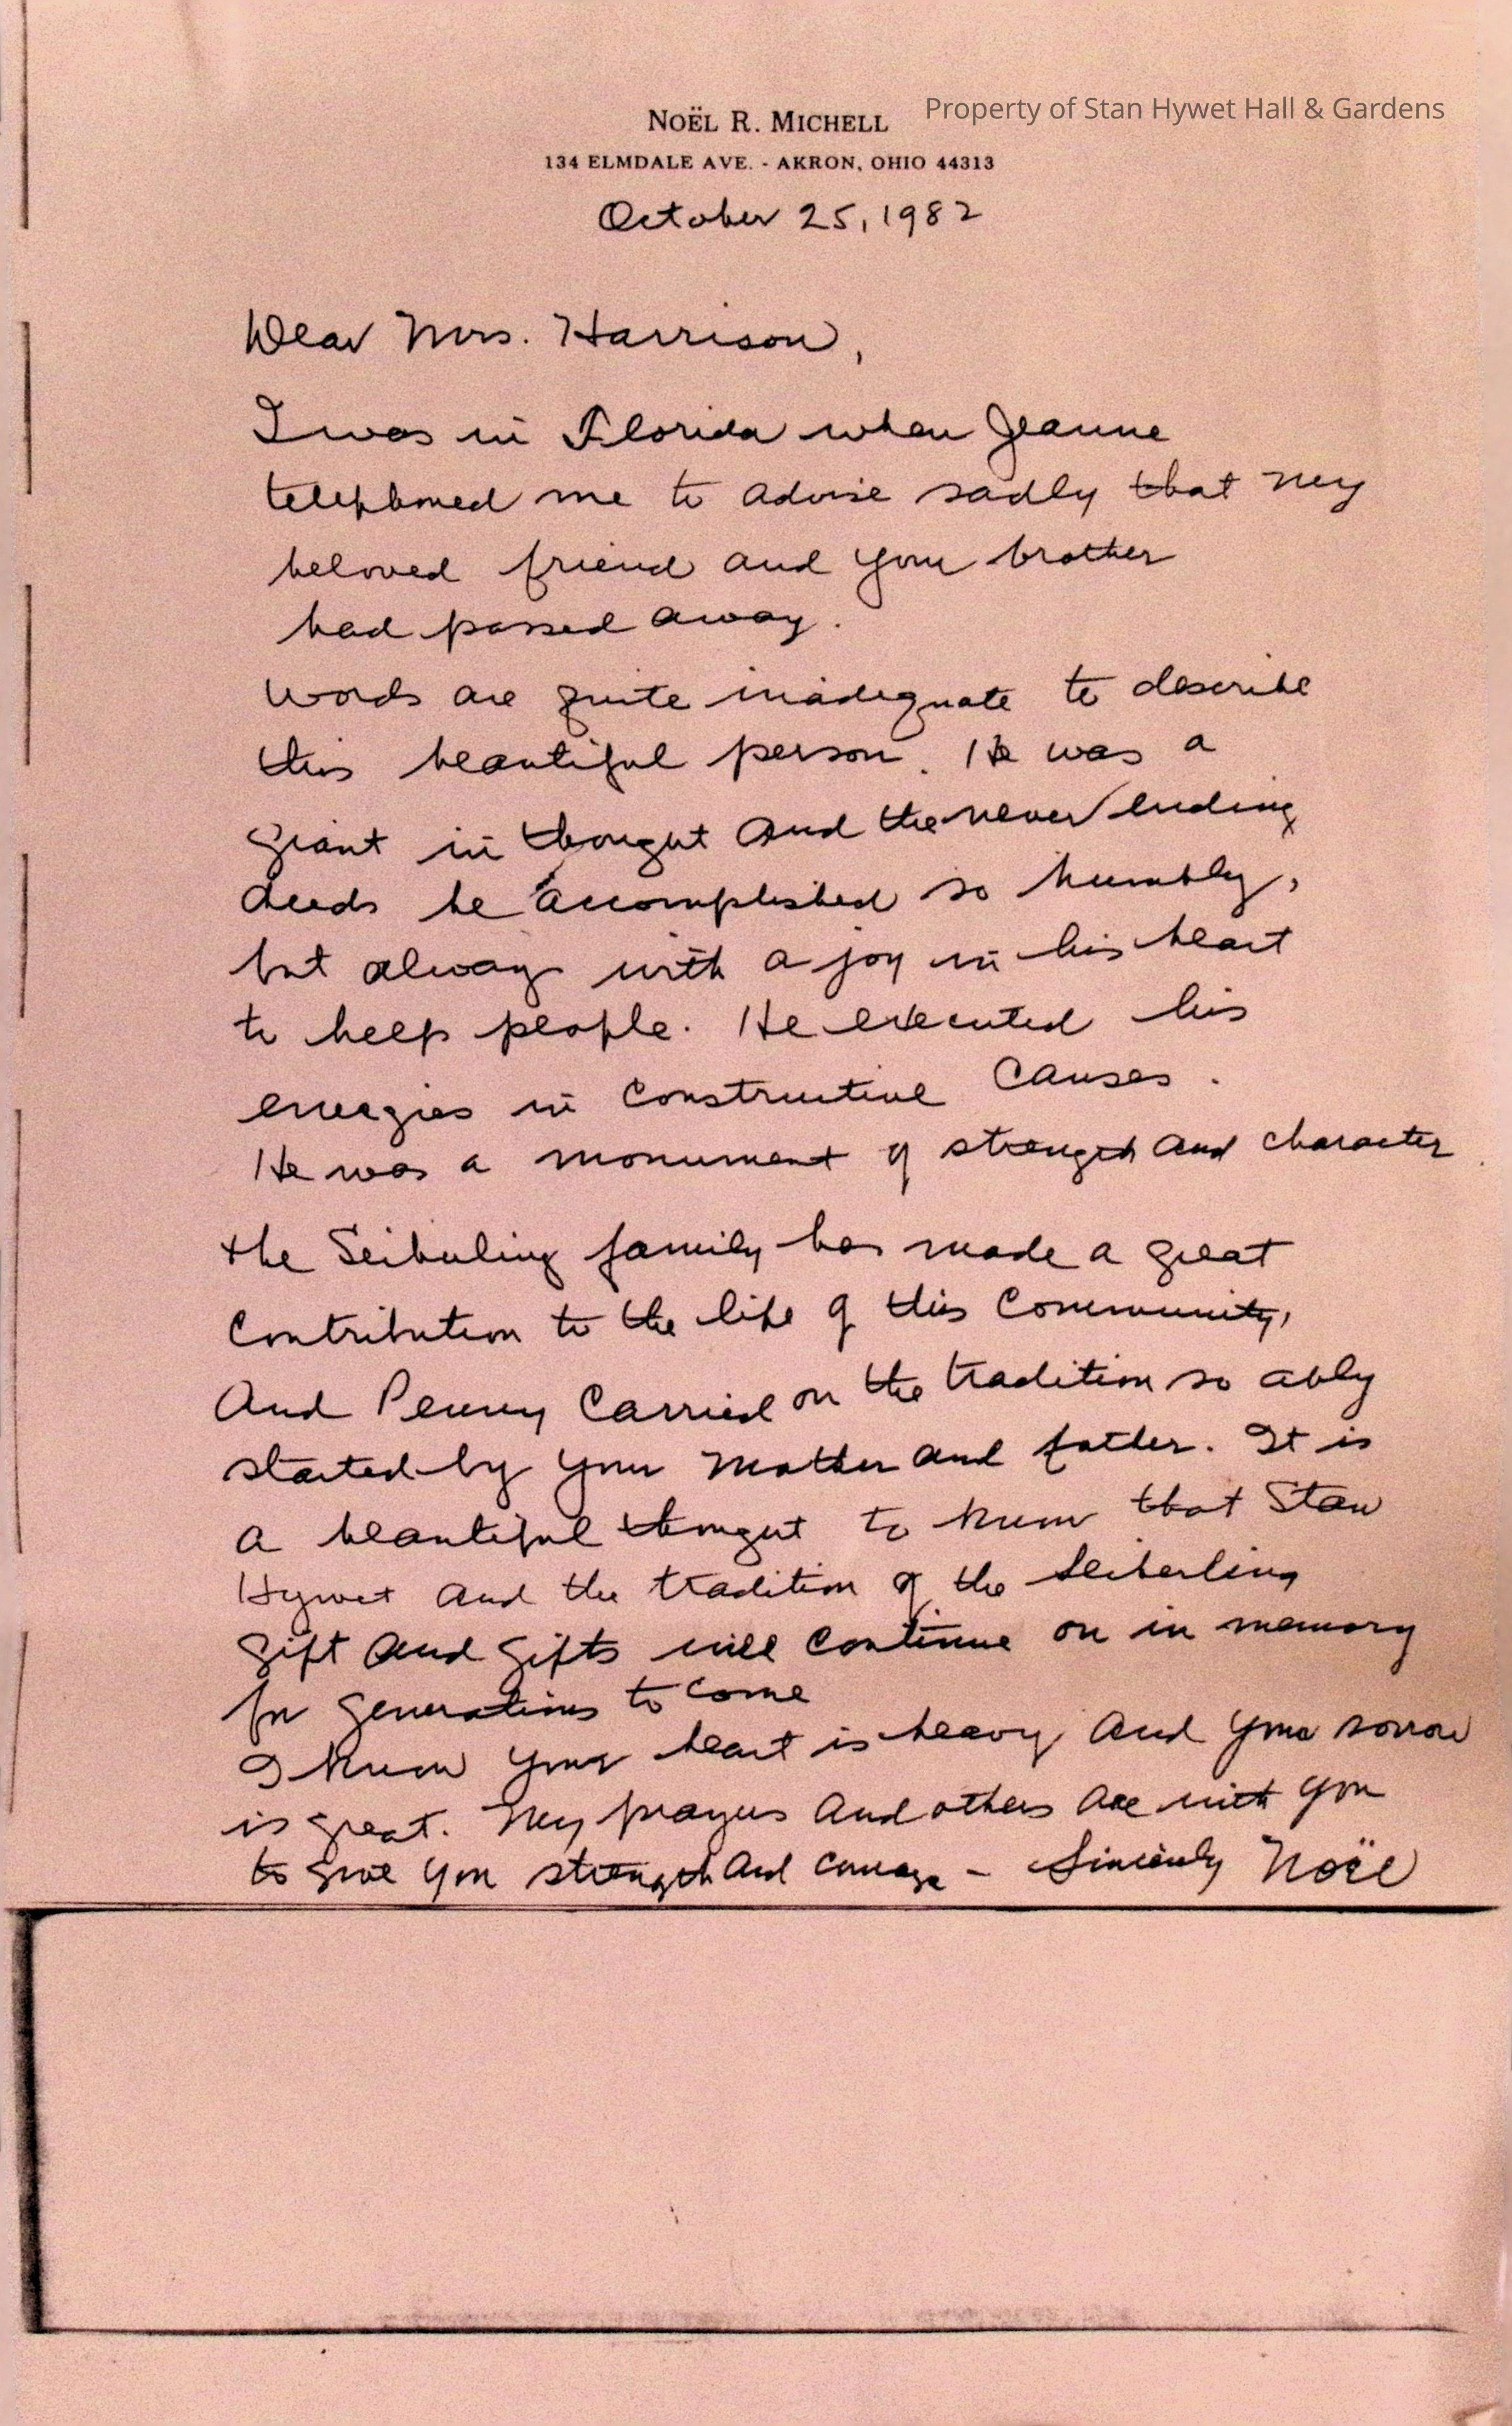 NOËL R. MICHELL
Property of Stan Hywet Hall & Gardens
134 ELMDALE AVE. - AKRON, OHIO 44313
October 25, 1982
Dear Mrs. Harrison,
I was in Florida when Jeanne
telephoned me to advise sadly that my
beloved friend and your brother
had passed away.
Words are quite inadequate to describe
this beautiful person. He was a
giant in thought and the never ending
deeds he accomplished so humbly,
but always with a joy in his heart
to help people. He executed his
energies in constructive causes.
He was a monument of strength and character
the Seiberling family has made a great
contribution to the life of this community,
And Penny carried on the tradition so ably
started by your mother and father. It is
a beautiful thought to know that Stan
Hywet and the tradition of the Seiberling
gift and gifts will continue on in memory
for generations to come
I know your heart is heavy and your sorrow
is great. My prayers and others are with you
to give you strength and courage - Sincerely Noël